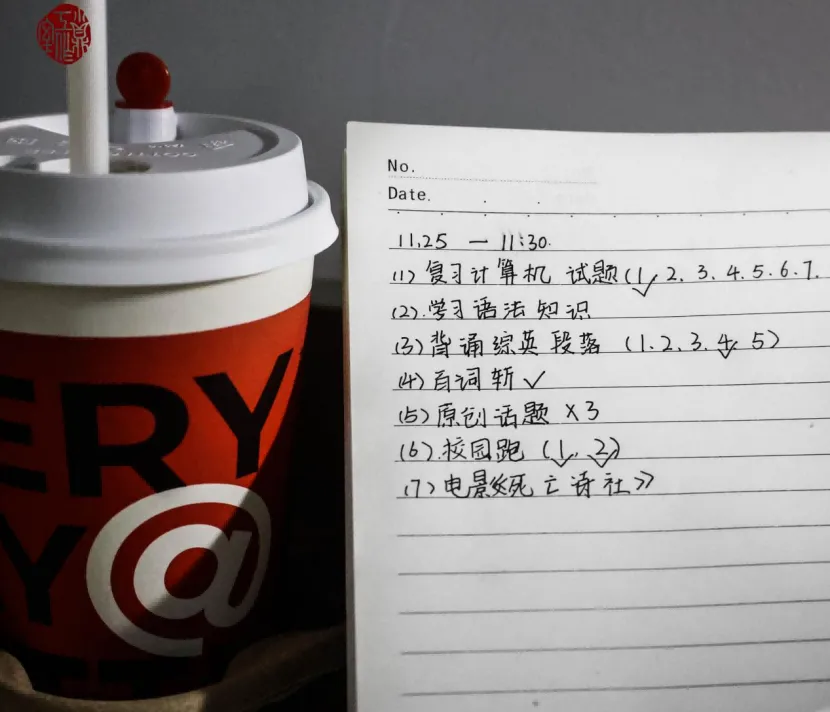 ERY
Y@
No.
Date.
11.25 — 11:30.
(1) 复习计算机 试题(1, 2、3、4、5、6、7、
(2).学习语法知识
(3) 背诵综英段落 (1、2、3、4、5)
(4) 百词斩 ✓
(5) 原创话题 ×3
(6).校园跑 (1、2)
(7) 电影《死亡诗社》